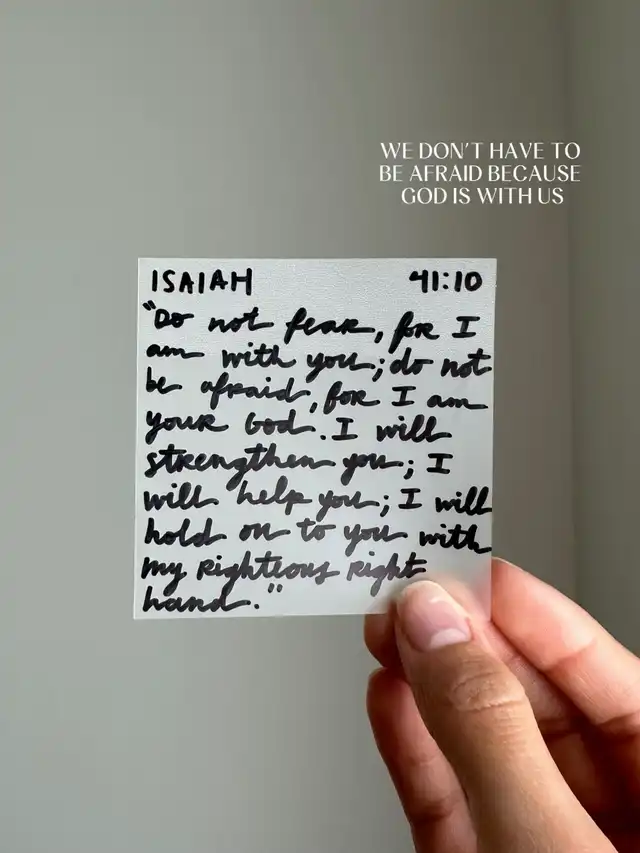 WE DON'T HAVE TO
BE AFRAID BECAUSE
GOD IS WITH US
ISAIAH 41:10
"Do not fear, for I
am with you; do not
be afraid, for I am
your God. I will
strengthen you; I
will help you; I will
hold on to you with
my righteous right
hand."